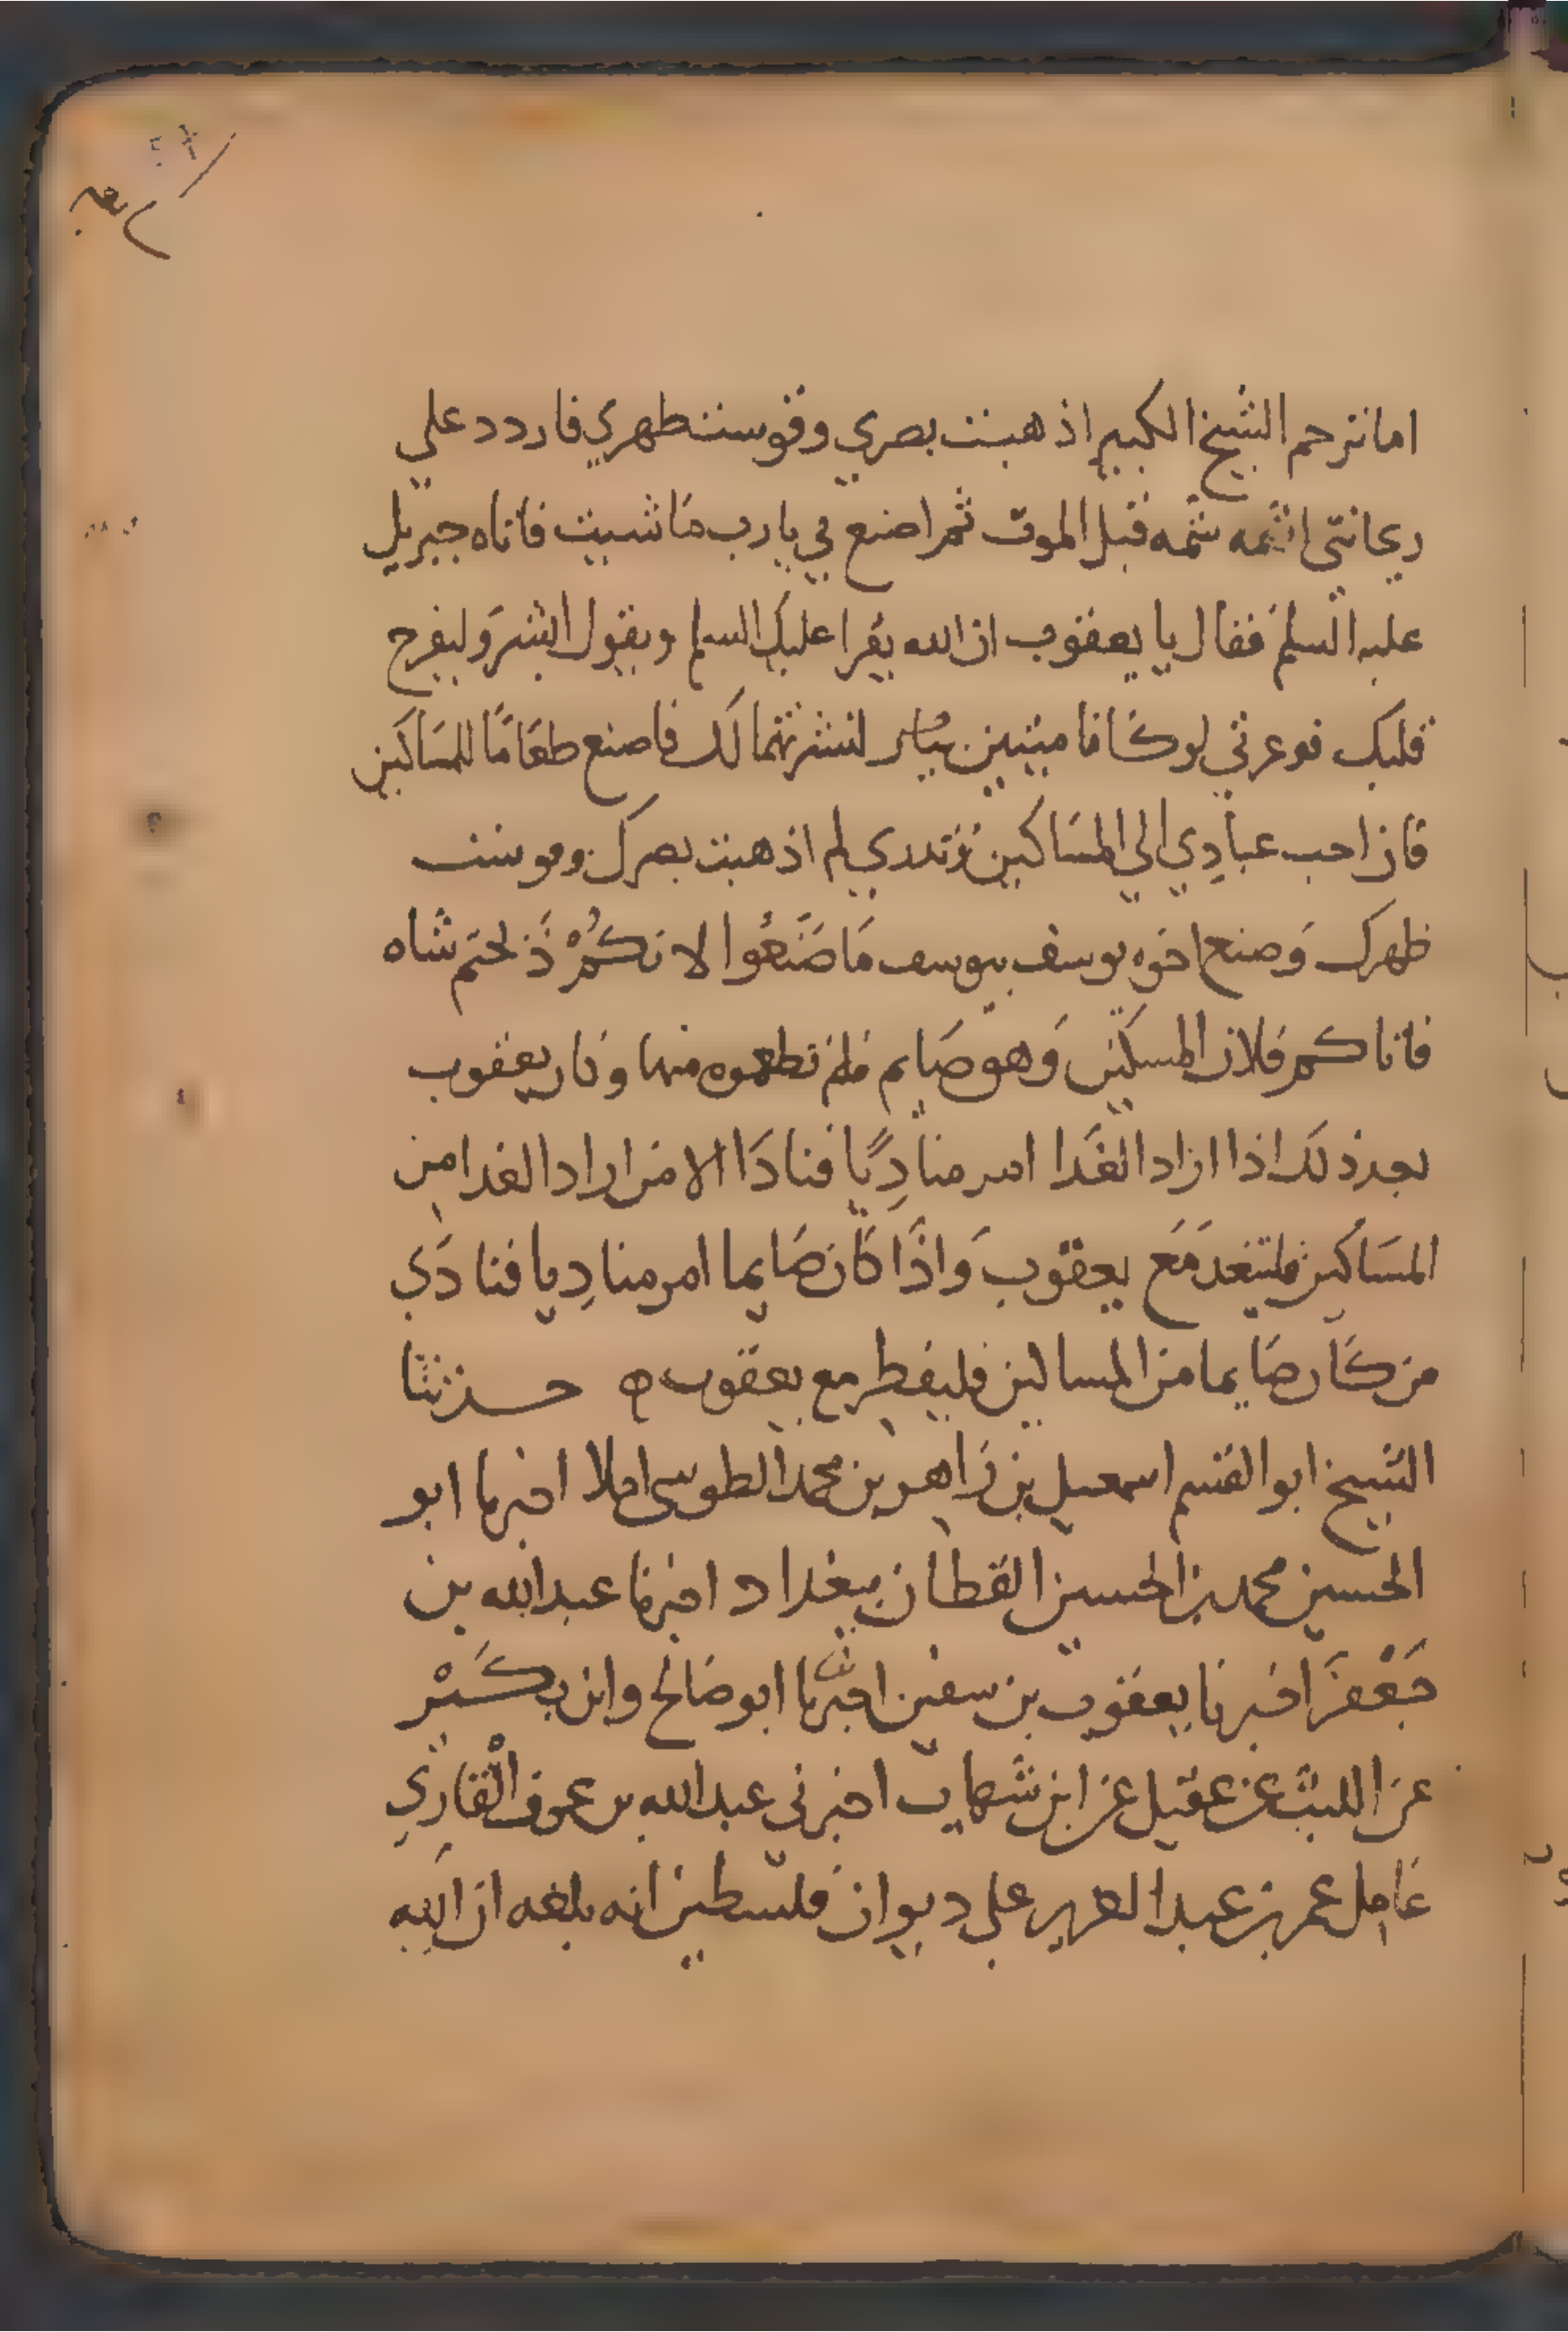 اما ترحم الشيخ الكبير اذهبت بصري وقوست ظهري فاردد علي
ريحانتي اشمه شمه قبل الموت ثم اصنع بي يا رب ما شيت فاتاه جبريل
عليه السلم فقال يا يعقوب ان الله يقرا عليك السلم ويقول ابشر وليفرح
قلبك فوعزتي لو كانا ميتين لنشرتهما لك فاصنع طعاما للمساكين
فان احب عبادي الي المساكين تدري لم اذهبت بصرك وقوست
ظهرك وصنع اخوه يوسف بيوسف ما صنعوا لانكم ذبحتم شاه
فاتاكم فلان المسكين وهو صايم فلم تطعموه منها وكان يعقوب
بعد ذلك اذا اراد الغدا امر مناديا فنادا الا من اراد الغدا من
المساكين فليتغد مع يعقوب واذا كان صايما امر مناديا فنادي
من كان صايما من المساكين فليفطر مع يعقوب ه حدثنا
الشيخ ابو القسم اسمعيل بن زاهر بن محمد الطوسي املا اخبرنا ابو
الحسين محمد بن الحسين القطان ببغداد اخبرنا عبد الله بن
جعفر اخبرنا يعقوب بن سفين اخبرنا ابو صالح وابن بكير
عن الليث عن عقيل عن ابن شهاب اخبرني عبد الله بن عوف القاري
عامل عمر بن عبد العزيز علي ديوان فلسطين انه بلغه ان الله